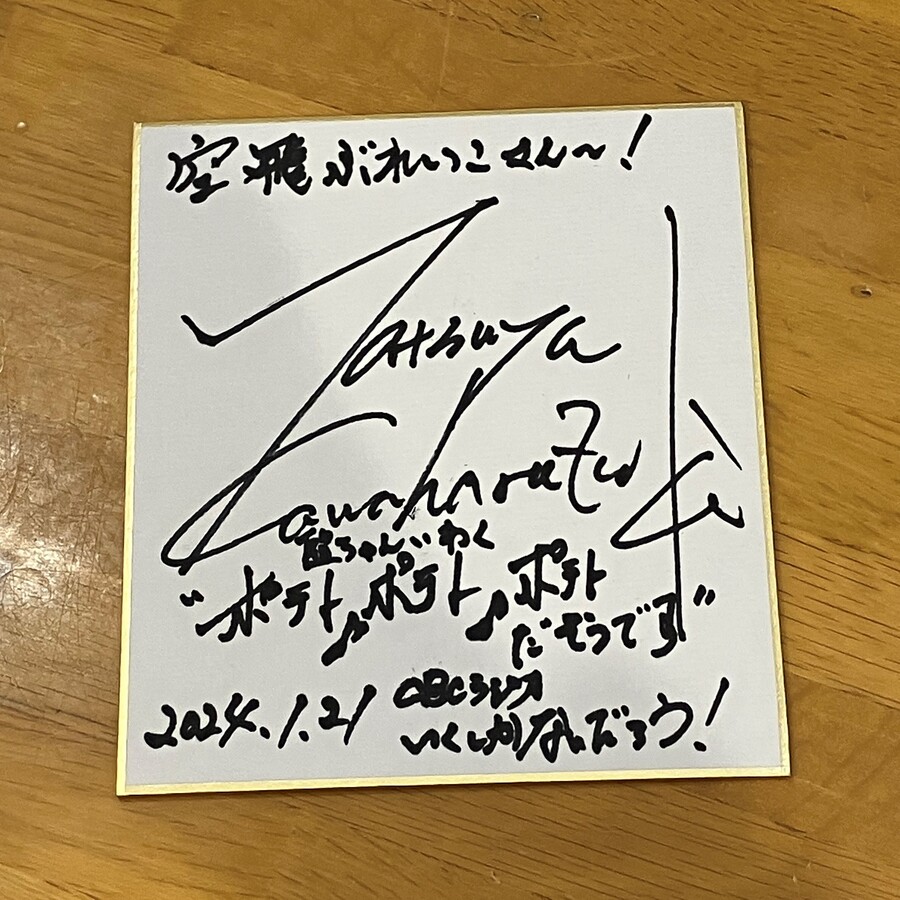 空飛ぶれいっこさん〜！
Tatsuya
Kawahara
ちゃんいわく
"ポテト♪ポテト♪ポテト
だそうです"
2024.1.21
CBCラジオ
いくしかないだろう！